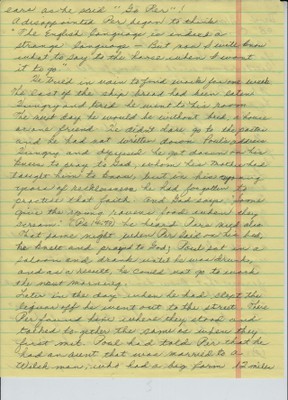 ears as he said "Go Per"!
A disappointed Per began to think
"The English Language is indeed a
strange language - But now I will know
what to say to the horse when I want
it to go."
He tried in vain to find work for one week
The last of the ship bread had been eaten
Hungry and tired he went to his room
The next day he would be without bed, a home
or one friend. He didn't dare go to the
and he had not written down Poul's address
Hungry and despond he got down on his
knees to pray to God, whom his Mother had
taught him to know, but in his young
years of recklessness he had forgotten to
practice that faith. And God says, "I
give the young ravens food when they
scream." Ps he heard Per's
That same night when Per sat on his bed,
he knelt and prayed to God; Poul sat in a
saloon and drank until he was drunk,
and as a result, he could not go to work
the next morning.
Later in the day when he had slept the
liquor off he went out to the street. There
Per found him where they stood and
talked together the same as when they
first met. Poul had told Per that he
had an aunt that was married to a
Welsh man, who had a big farm 12 miles